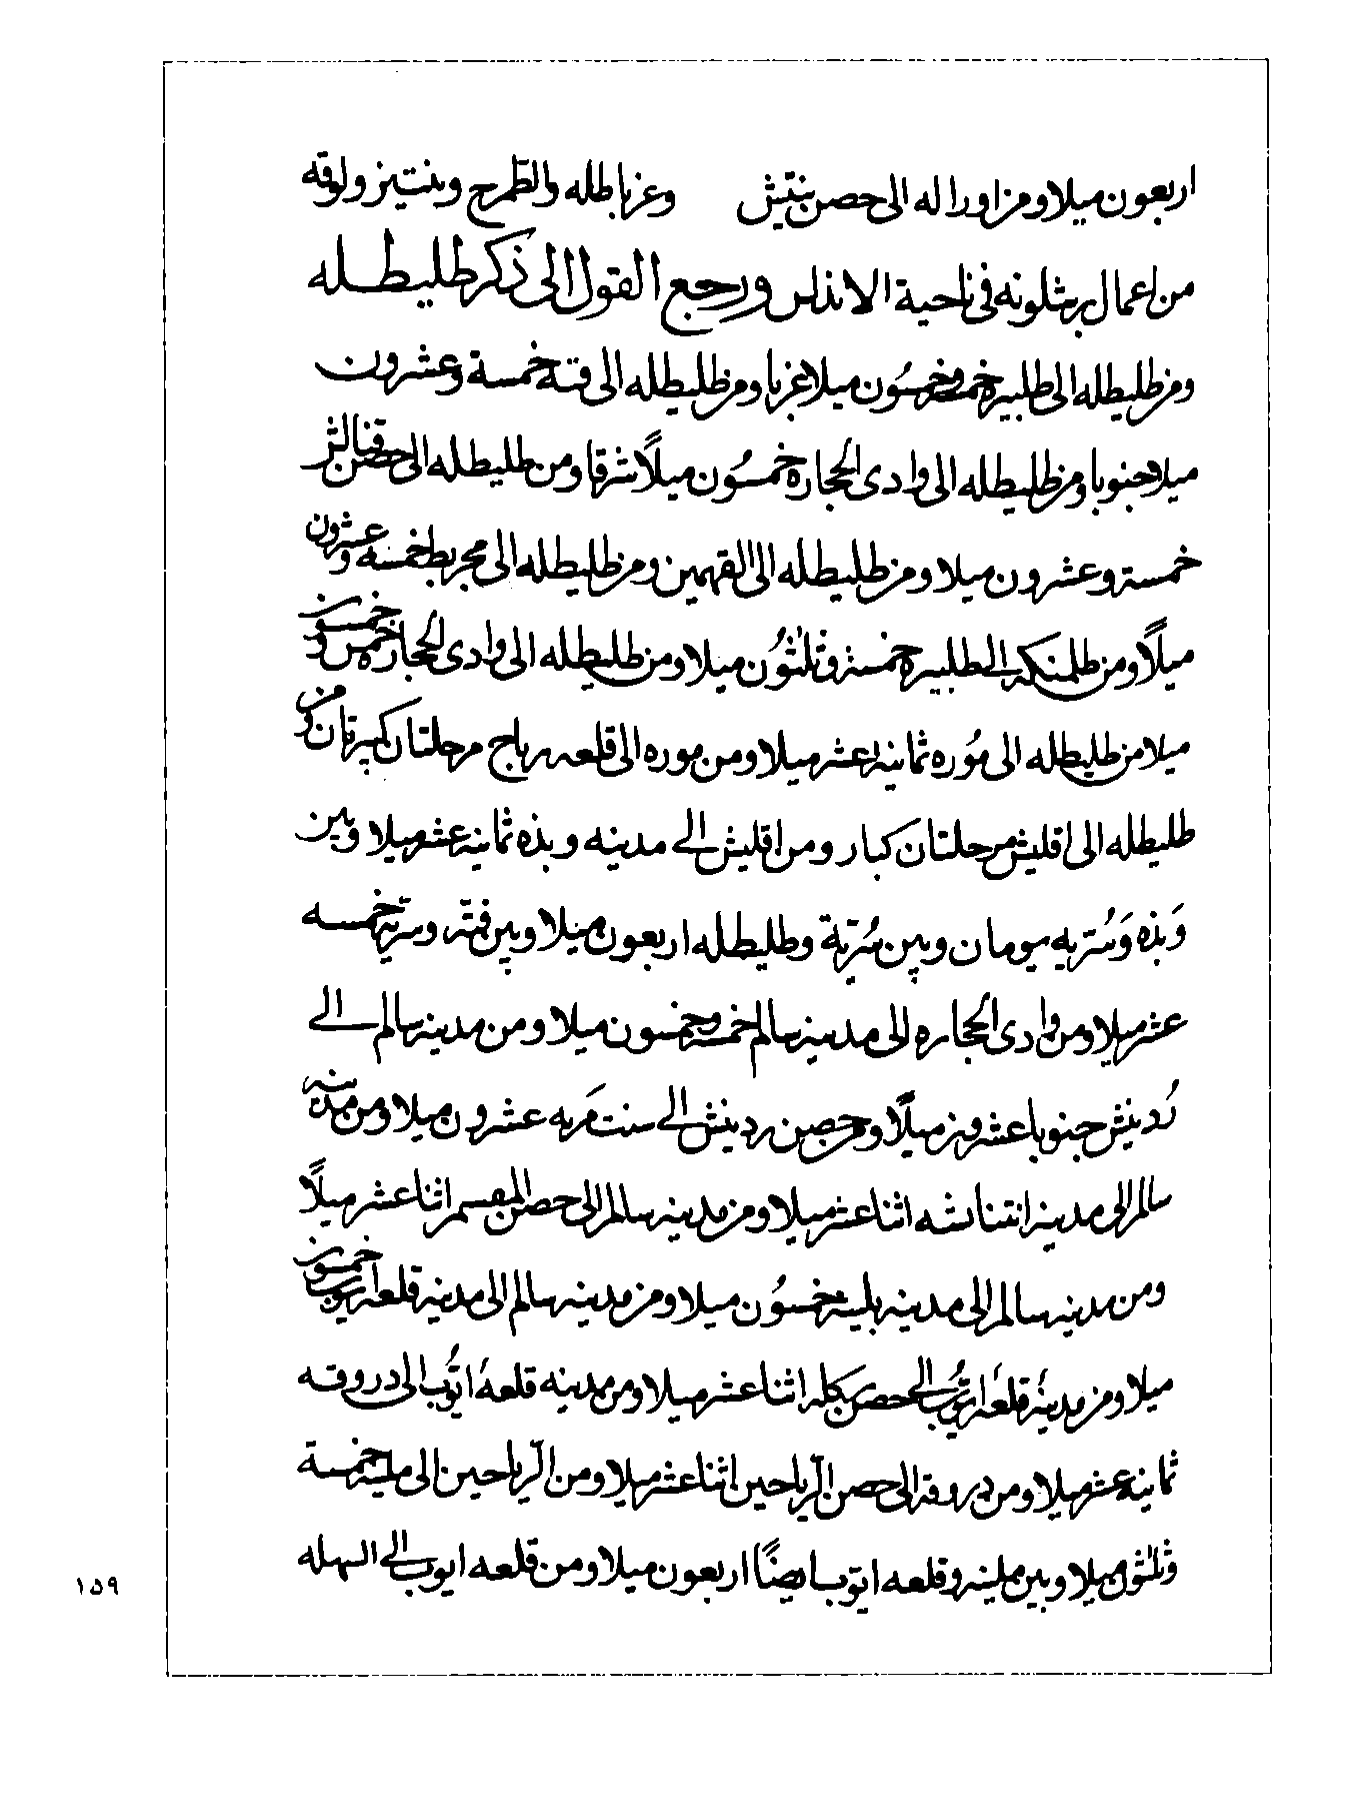 اربعون ميلا ومن اوراله الى حصن بنتيش وغزناطله والطرح وبنتيز ولوقه
من اعمال برشلونه في ناحية الاندلس ورجع القول الى ذكر طليطله
ومن طليطله الى طلبيره خمسة وخمسون ميلا غربا ومن طليطله الى فته خمسة وعشرون
ميلا جنوبا ومن طليطله الى وادى الحجاره خمسون ميلاً شرقا ومن طليطله الى حصن قنالش
خمسة وعشرون ميلا ومن طليطله الى الفهمين ومن طليطله الى مجريط خمسه وعشرون
ميلاً ومن طلمنكه الى طلبيره خمسة وثلثون ميلا ومن طليطله الى وادى الحجاره خمس وخمسون
ميلا من طليطله الى مُوره ثمانية عشر ميلا ومن موره الى قلعه رباح مرحلتان كبيرتان ومن
طليطله الى اقليش مرحلتان كبار ومن اقليش الى مدينه وبذه ثمانيه عشر ميلا وبين
وَبذه وَسُتريه يومان وبين سُرتّة وطليطله اربعون ميلا وبين فتّه وسرتّه خمسه
عشر ميلا ومن وادى الحجاره الى مدينه سالم خمسة وخمسون ميلا ومن مدينه سالم الى
رُدنيش جنوبا عشرون ميلاً ومن حصن ردنيش الى سنت مَريه عشرون ميلا ومن مدينه
سالم الى مدينه انتناسشه اثنا عشر ميلا ومن مدينه سالم الى حصن المقسم اثنا عشر ميلاً
ومن مدينه سالم الى مدينه بلبسه خمسُون ميلا ومن مدينه سالم الى مدينه قلعه ايوب خمسون
ميلا ومن مدينَة قلعَه ايّوُب الى حصن بكله اثنا عشر ميلا ومن مدينه قلعهَ ايّوُب الى دروقه
ثمانية عشر ميلا ومن دروقة الى حصن الرّياحين اثنا عشر ميلا ومن الرّياحين الى ملينه خمسة
وثلثون ميلا وبين ملينه وقلعه ايوّب ايضاً اربعون ميلا ومن قلعه ايوب الى السهله
١٥٩